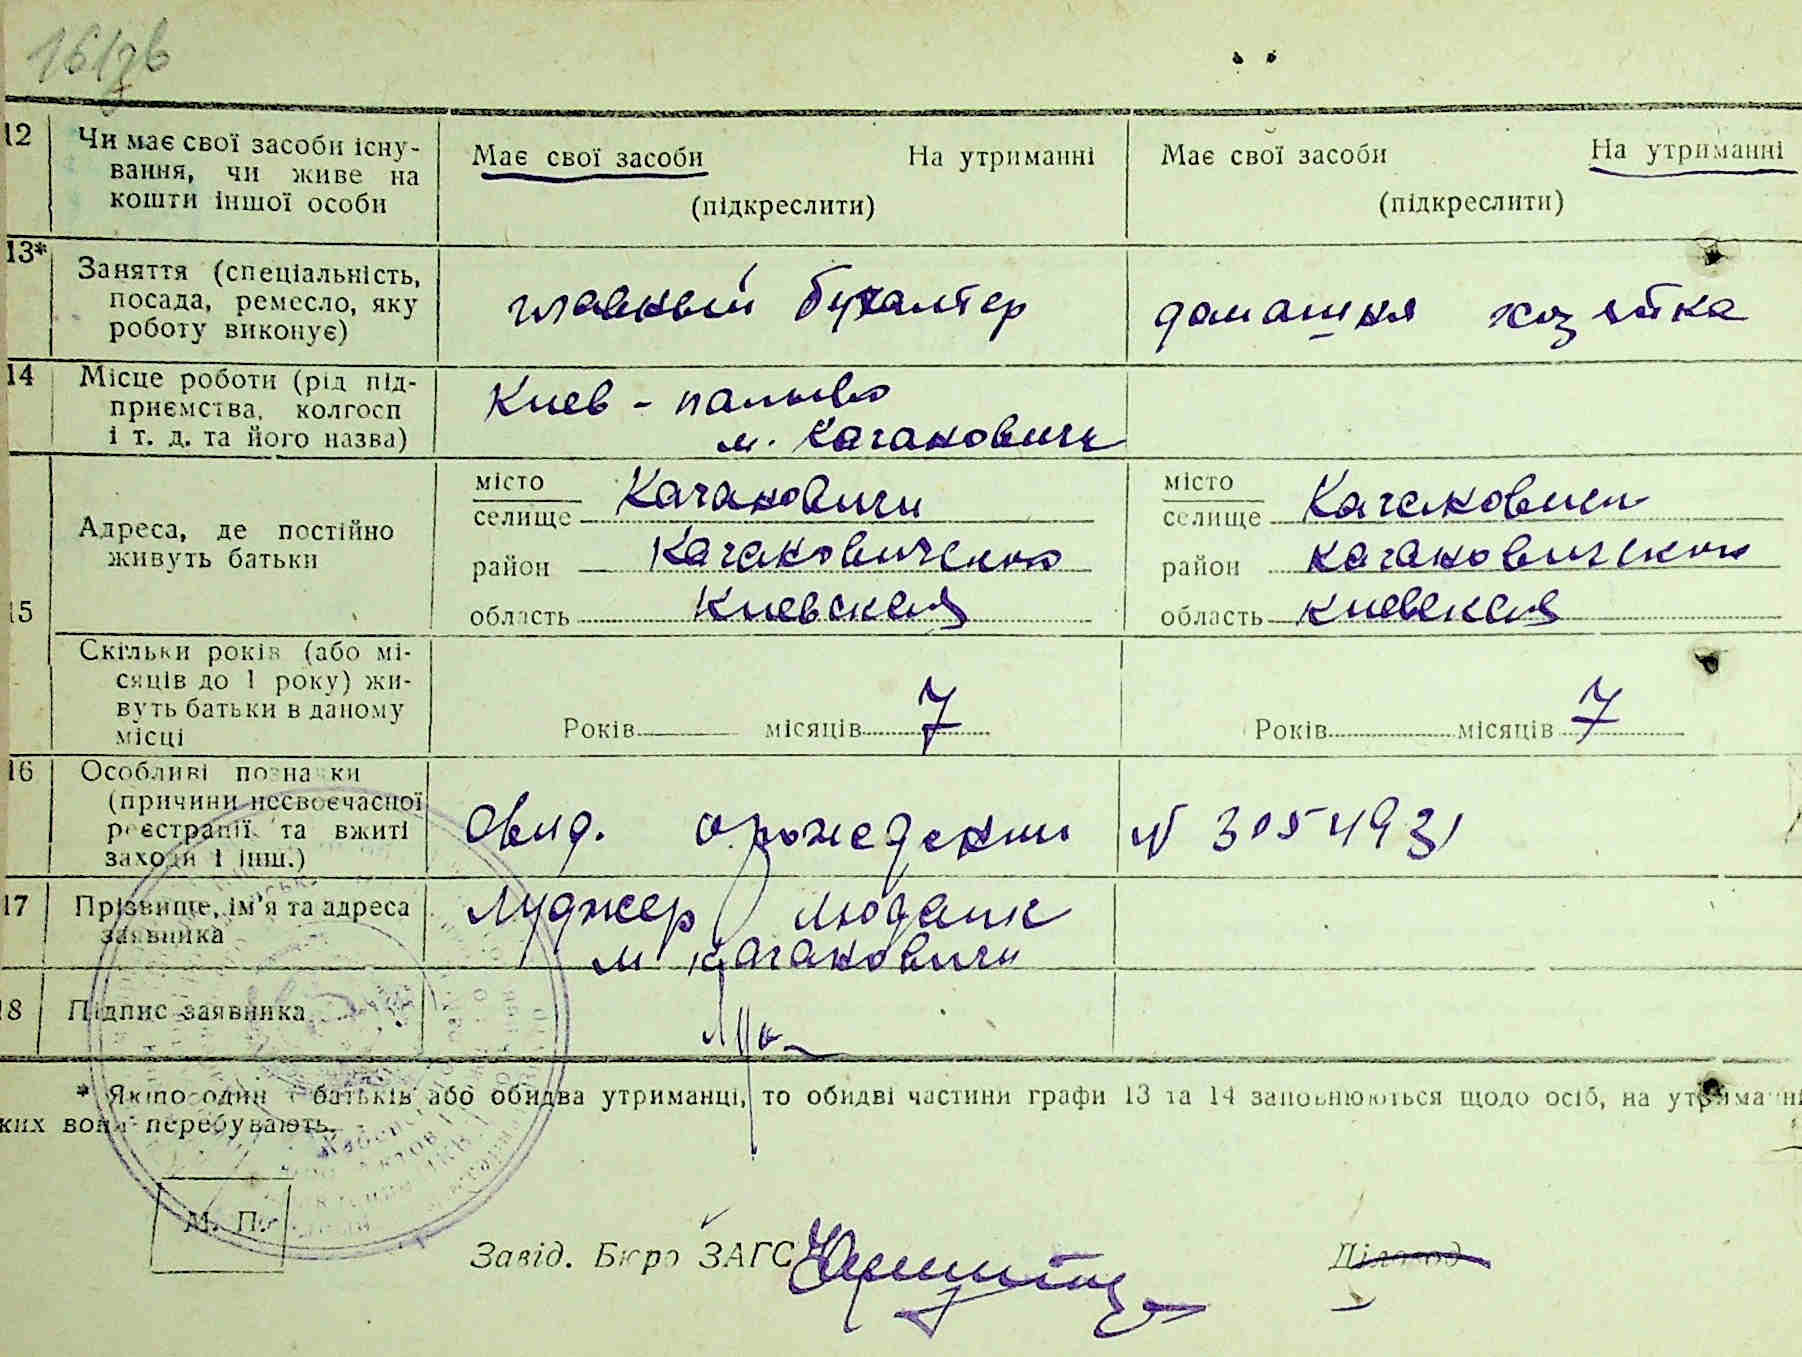 16/76
12 Чи має свої засоби існу-
вання, чи живе на
кошти іншої особи
Має свої засоби На утриманні
(підкреслити)
Має свої засоби На утриманні
(підкреслити)
13* Заняття (спеціальність,
посада, ремесло, яку
роботу виконує)
главный бухгалтер
домашняя хозяйка
14 Місце роботи (рід під-
приємства, колгосп
і т. д. та його назва)
Киев - паливо
м. Кагановичи
15 Адреса, де постійно
живуть батьки
місто
селище Кагановичи
район Кагановичский
область Киевская
місто
селище Кагановичи
район Кагановичский
область Киевская
Скільки років (або мі-
сяців до 1 року) жи-
вуть батьки в даному
місці
Років місяців 7
Років місяців 7
16 Особливі познаки
(причини несвоєчасної
реєстрації та вжиті
заходи і інш.)
Свид. о рождении № 3054931
17 Прізвище, ім'я та адреса
заявника
Луджер
м Кагановичи
18 Підпис заявника
* Якщо один з батьків або обидва утриманці, то обидві частини графи 13 та 14 заповнюються щодо осіб, на утриманні
яких вони перебувають.
М. П.
Завід. Бюро ЗАГС
Діловод